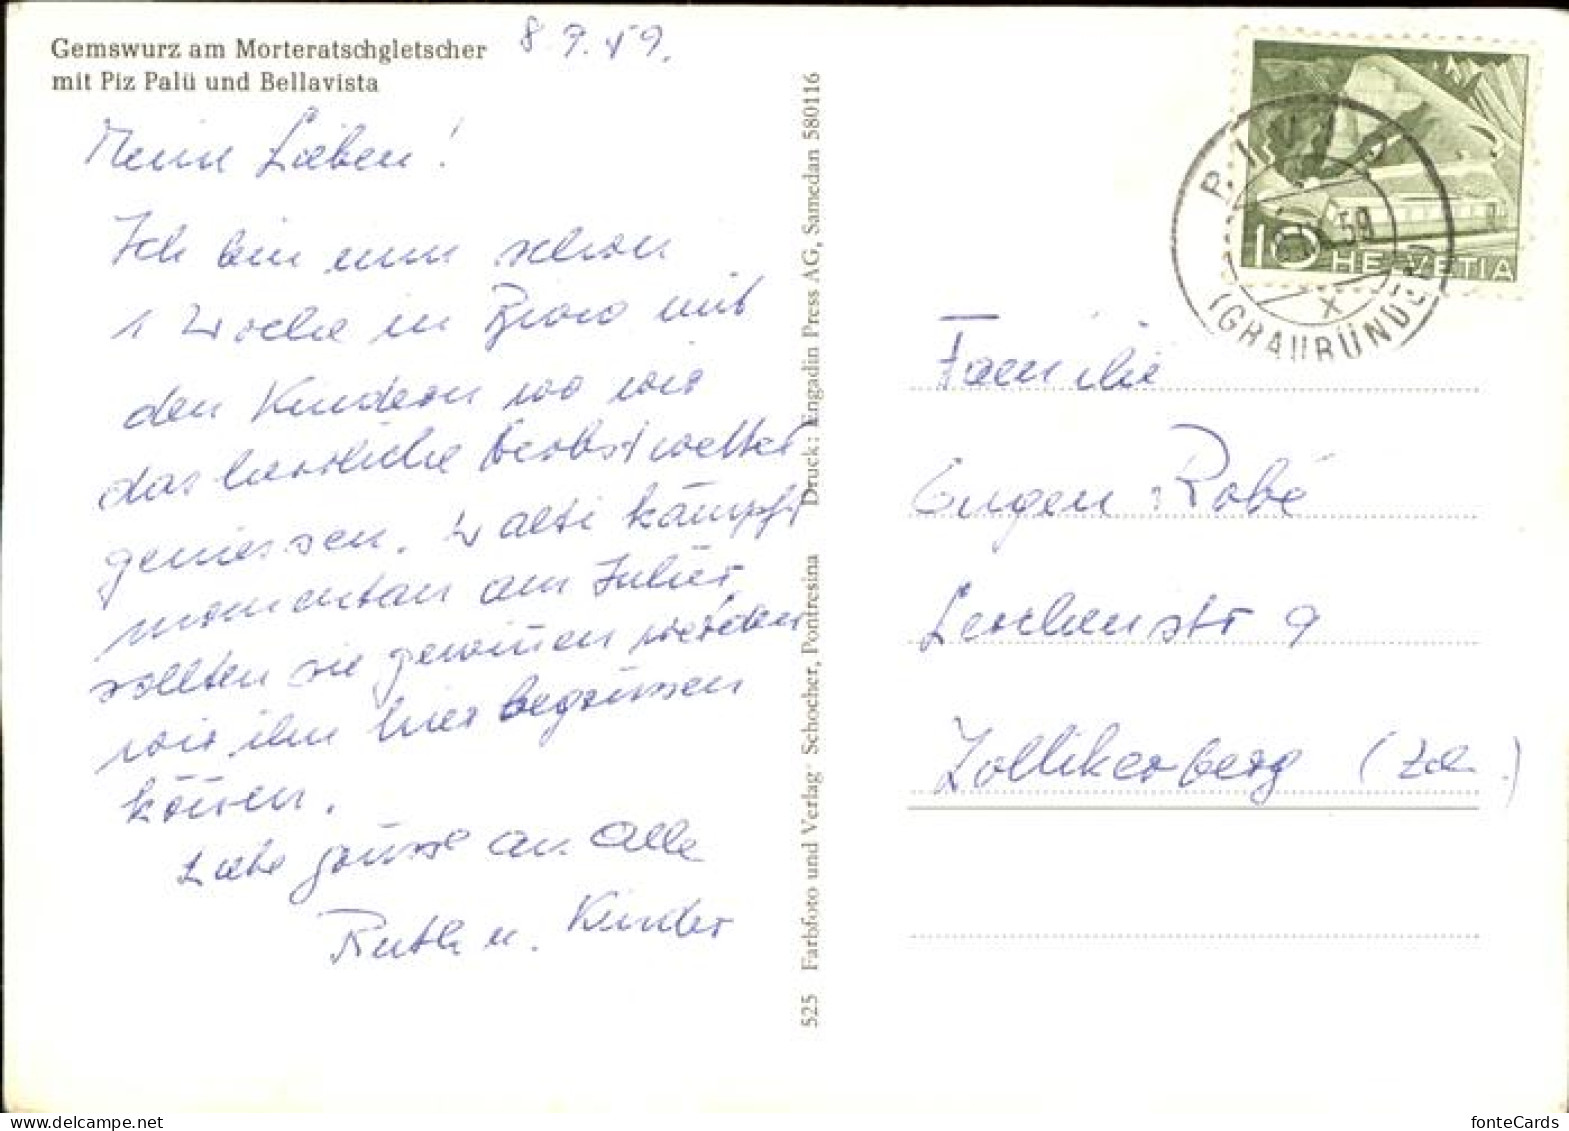 Gemswurz am Morteratschgletscher
mit Piz Palü und Bellavista
8.9.59.
Meine Lieben!
Ich bin nun schon
1 Woche in mit
den Kindern wo wir
das herrliche Herbstwetter
geniessen. Walti kämpft
momentan am Julier,
sollten sie gewinen werden
wir ihn hier begrüssen
können.
Liebe Grüsse an Alle
Ruth u. Kinder
525 Farbfoto und Verlag: Schocher, Pontresina Druck: Engadin Press AG, Samedan 580116
10 HELVETIA
59
(GRAUBÜNDEN)
X
Familie
Eugen Robé
Lerchenstr 9
Zollikerberg (Zch.)
fonteCards